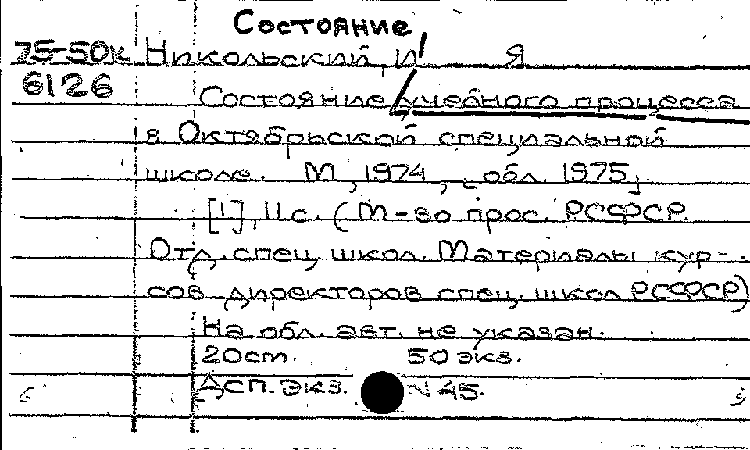 Состояние
75-50к Никольский, И Я
6126
Состояние учебного процесса
в Октябрьской специальной
школе. М, 1974, [обл. 1975]
[1], 11с. (М-во прос. РСФСР.
Отд. спец. школ. Материалы кур-
сов директоров спец. школ РСФСР)
На обл. авт. не указан.
20ст. 50 экз.
Дсп. Экз. N 45.